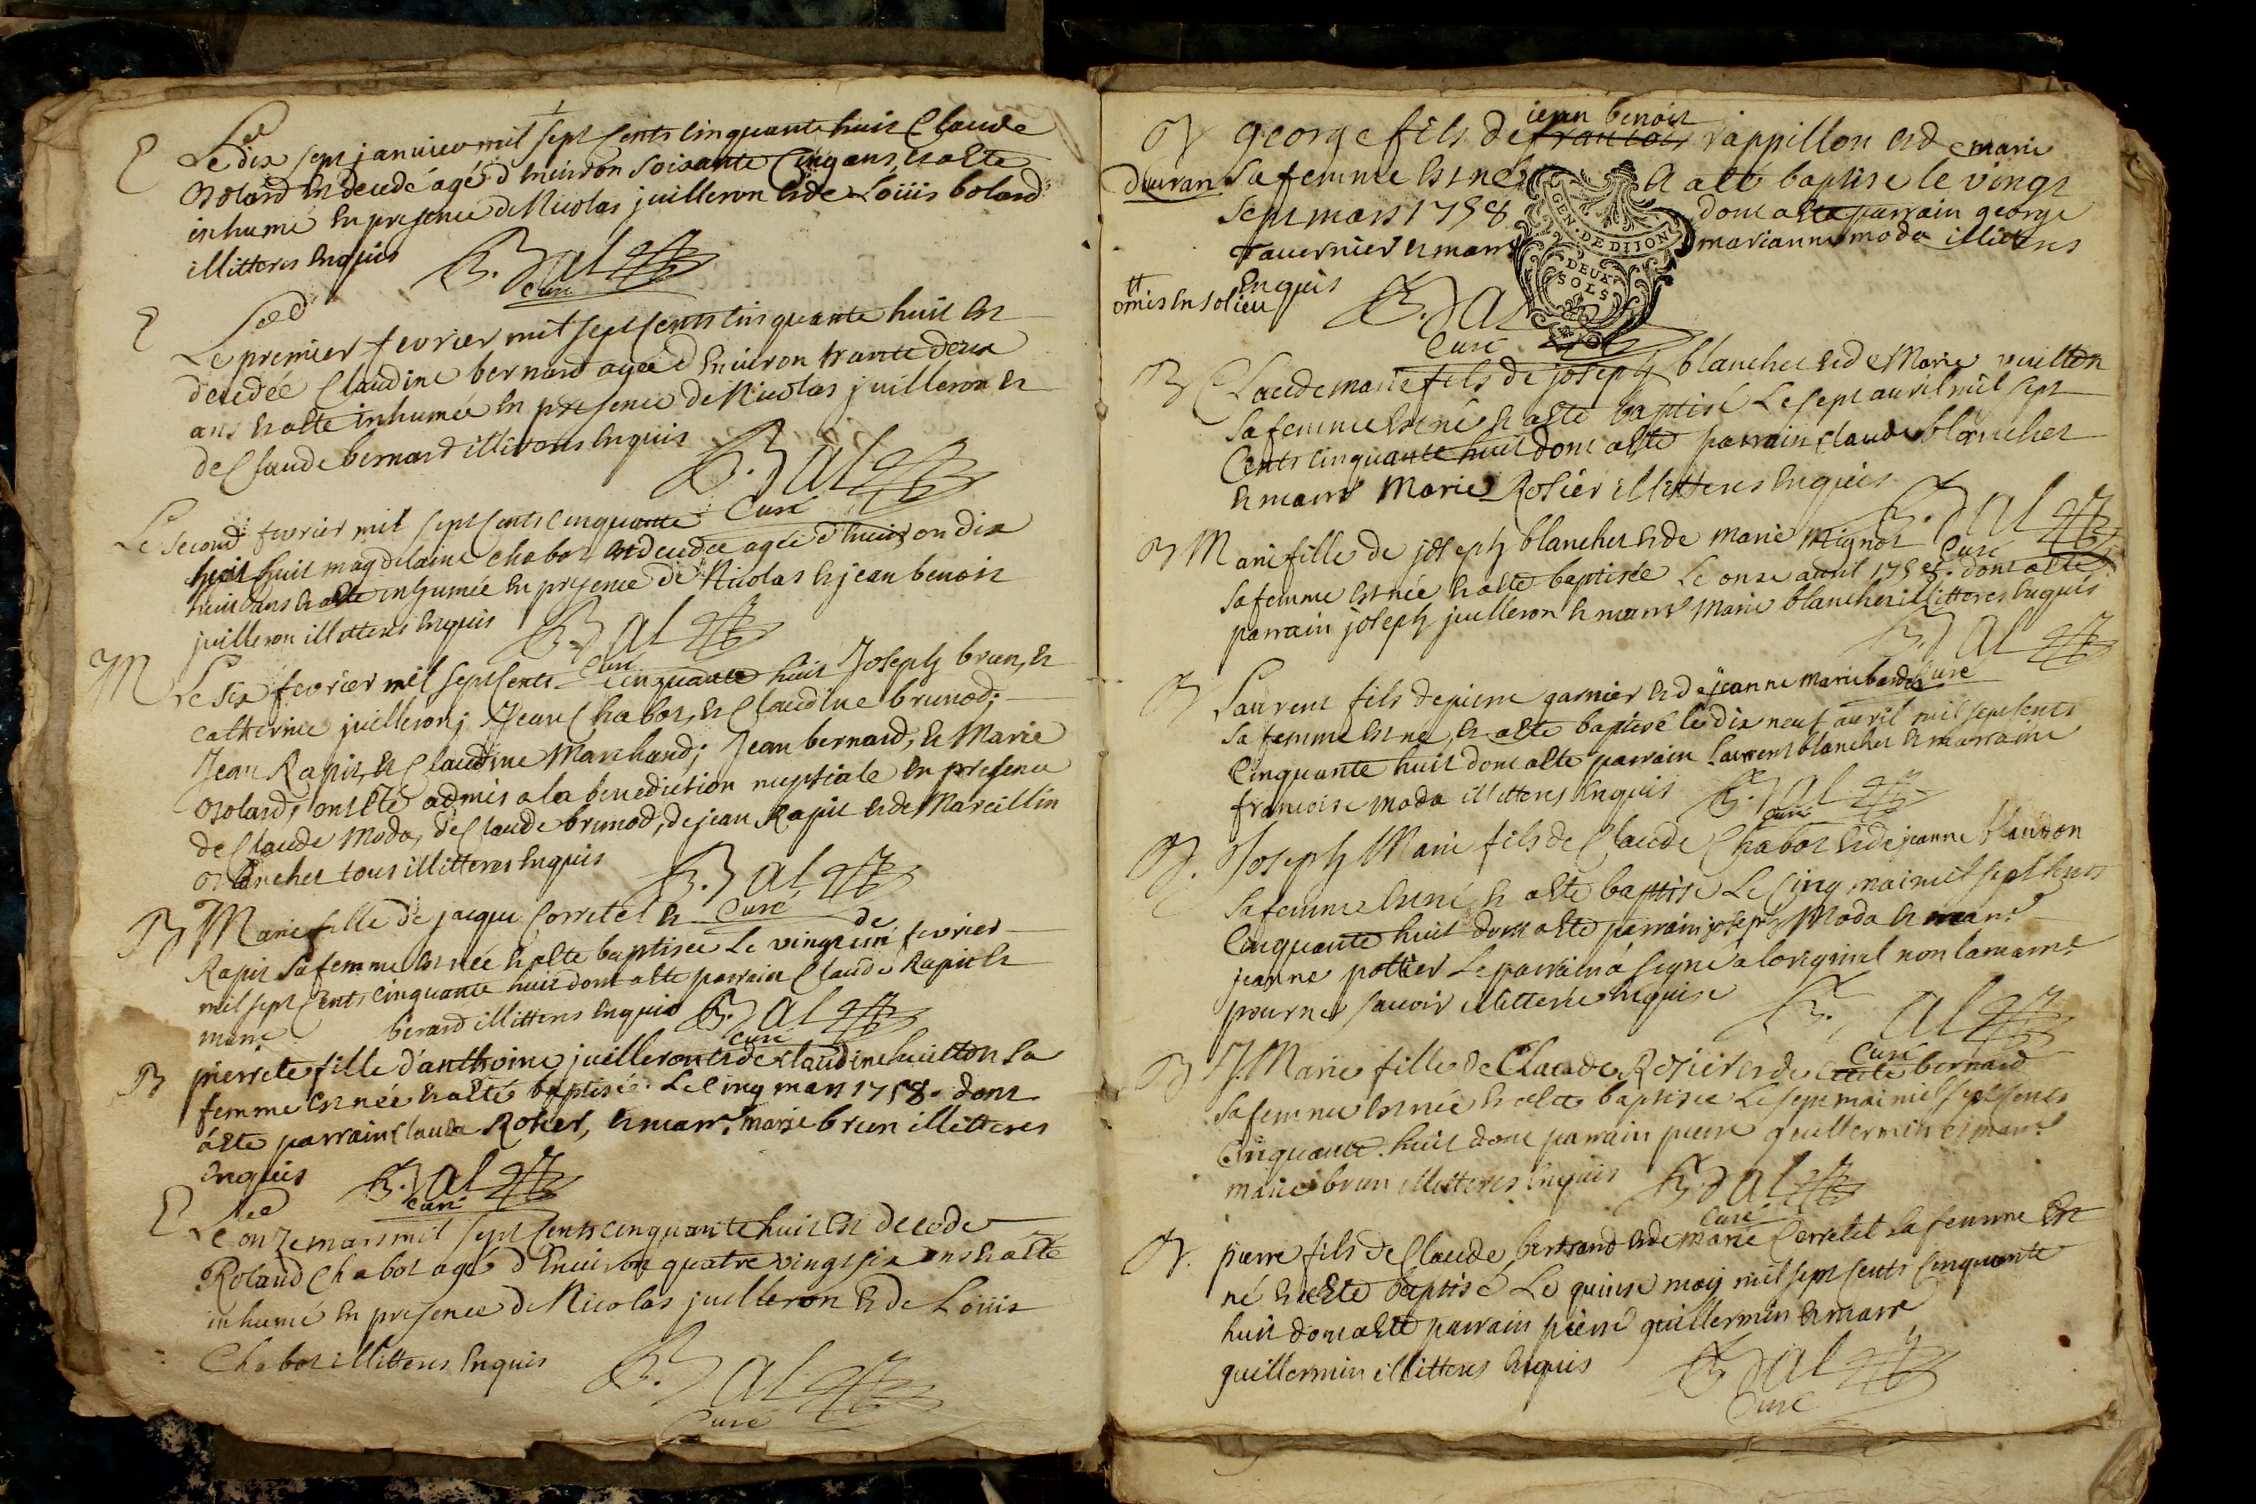 E Led
Le dix sept janvier mil sept cents cinquante huit Claude
Bolard est decedé agé d'environ soisante cinq ans et a esté
inhumé en presence de Nicolas juilleron et de Loüis bolard
illitteres enquis B. Dal
curé
E Led
Le premier fevrier mil sept cents cinquante huit est
decedée Claudine bernard agée d'environ trante deux
ans et a esté inhumée en presence de Nicolas juilleron et
de Claude bernard illiteres enquis B. Dal
curé
Le second fevrier mil sept cents cinquante
huit magdelaine chabot est decedée agée d'environ dix
huit ans et a esté inhumée en presence de Nicolas et jean benoit
juilleron illitteres enquis B. Dal
curé
M Le six fevrier mil sept cents cinquante huit Joseph brun, et
catherine juilleron; Jean Chabot, et Claudine brunod;
Jean Rapit, et Claudine Marchand; Jean bernard, et Marie
Bolard, ont été admis a la benediction nuptiale en presence
de Claude Moda, de Claude brunod, de jean Rapit et de Marcillin
Blanchet tous illitteres enquis B. Dal
curé
B Marie fille de jacque Corretel et de
Rapit sa femme est née et a esté baptisée le vingt un fevrier
mil sept cents cinquante huit dont a esté parrain Claude Rapit et
marr berard illitteres enquis B. Dal
curé
B pierrete fille d'anthoine juilleron et de claudine vuitton sa
femme est née et a esté baptisée le cinq mars 1758. dont
a esté parrain Claude Rosier, et marr. marie brun illitteres
enquis B. Dal
curé
E Led
Le onze mars mil sept cents cinquante huit est decedé
Roland Chabot agé d'environ quatre vingt six ans et a esté
inhumé en presence de Nicolas juilleron et de Loüis
Chabot illitteres enquis B. Dal
curé
B george fils de francois jean benoit Pappillon et de marie
duvran sa femme est né et a esté baptisé le vingt
sept mars 1758 dont a esté parrain george
Tavernier et marr marianne moda illitteres
enquis B. Dal
omis en so lieu
curé
GEN. DE DIJON
DEUX
SOLS
B Claude marie fils de joseph blanchet et de Marie vuitton
sa femme est né et a esté baptisé le sept avril mil sept
cents cinquante huit dont a esté parrain claude blanchet
et marre Marie Rosier illitteres enquis
B. Dal
curé
B Marie fille de joseph blanchet et de marie Mignot
sa femme est née et a esté baptisée le onze avril 1758. dont a esté
parrain joseph juilleron et marre Marie blanchet illitteres enquis
B. Dal
curé
B Laurent fils de pierre garnier et de jeanne marie
sa femme est né, et a esté baptisé le dix neuf avril mil sept cents
cinquante huit dont a esté parrain laurent blanchet et marraine
francoise moda illitteres enquis B. Dal
curé
B. Joseph Marie fils de Claude Chabot et de jeanne blandon
sa femme est né, et a esté baptisé le cinq mai mil sept cents
cinquante huit dont a esté parrain joseph Moda et marre
jeanne pottier le parrain a signé a l'original non la marre
pour ne sçavoir illitterée enquise
B. Dal
curé
B J. Marie fille de Claude Rosier et de bernard
sa femme est née et a esté baptisée le sept mai mil sept cents
cinquante huit dont parrain pierre guillermin et marre
marie brun illitteres enquis B. Dal
curé
B. pierre fils de Claude bertrand et de marie Corretel sa femme est
né et a esté baptisé le quinze mois mil sept cents cinquante
huit dont a esté parrain pierre guillermin et marre
guillermin illitteres enquis B. Dal
curé